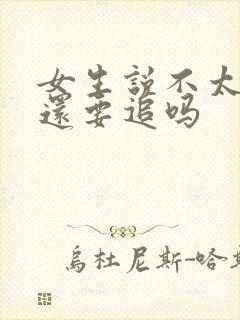 女生説不太
還要追吗
烏杜尼斯-哈